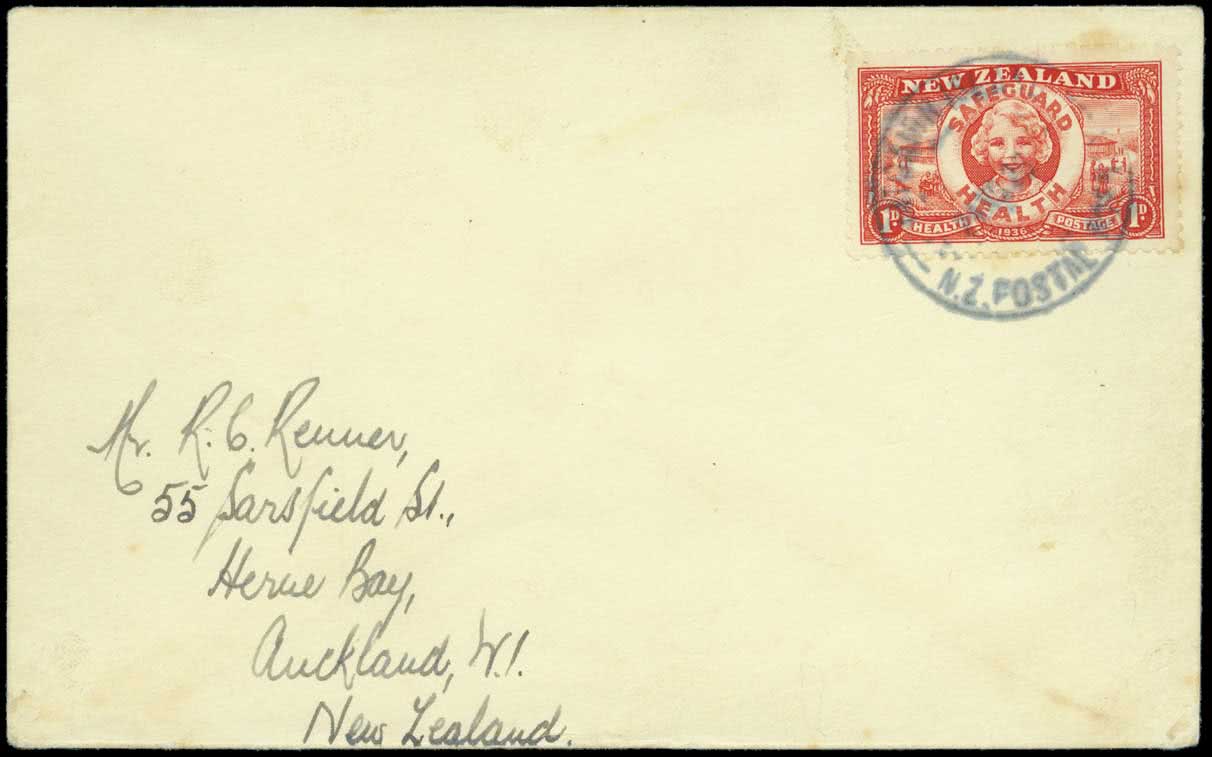 NEW ZEALAND
SAFEGUARD
HEALTH
1D HEALTH 1936 POSTAGE 1D
N.Z. POSTAL
Mr. R. C. Renner,
55 Sarsfield St.,
Herne Bay,
Auckland, W.1.
New Zealand.